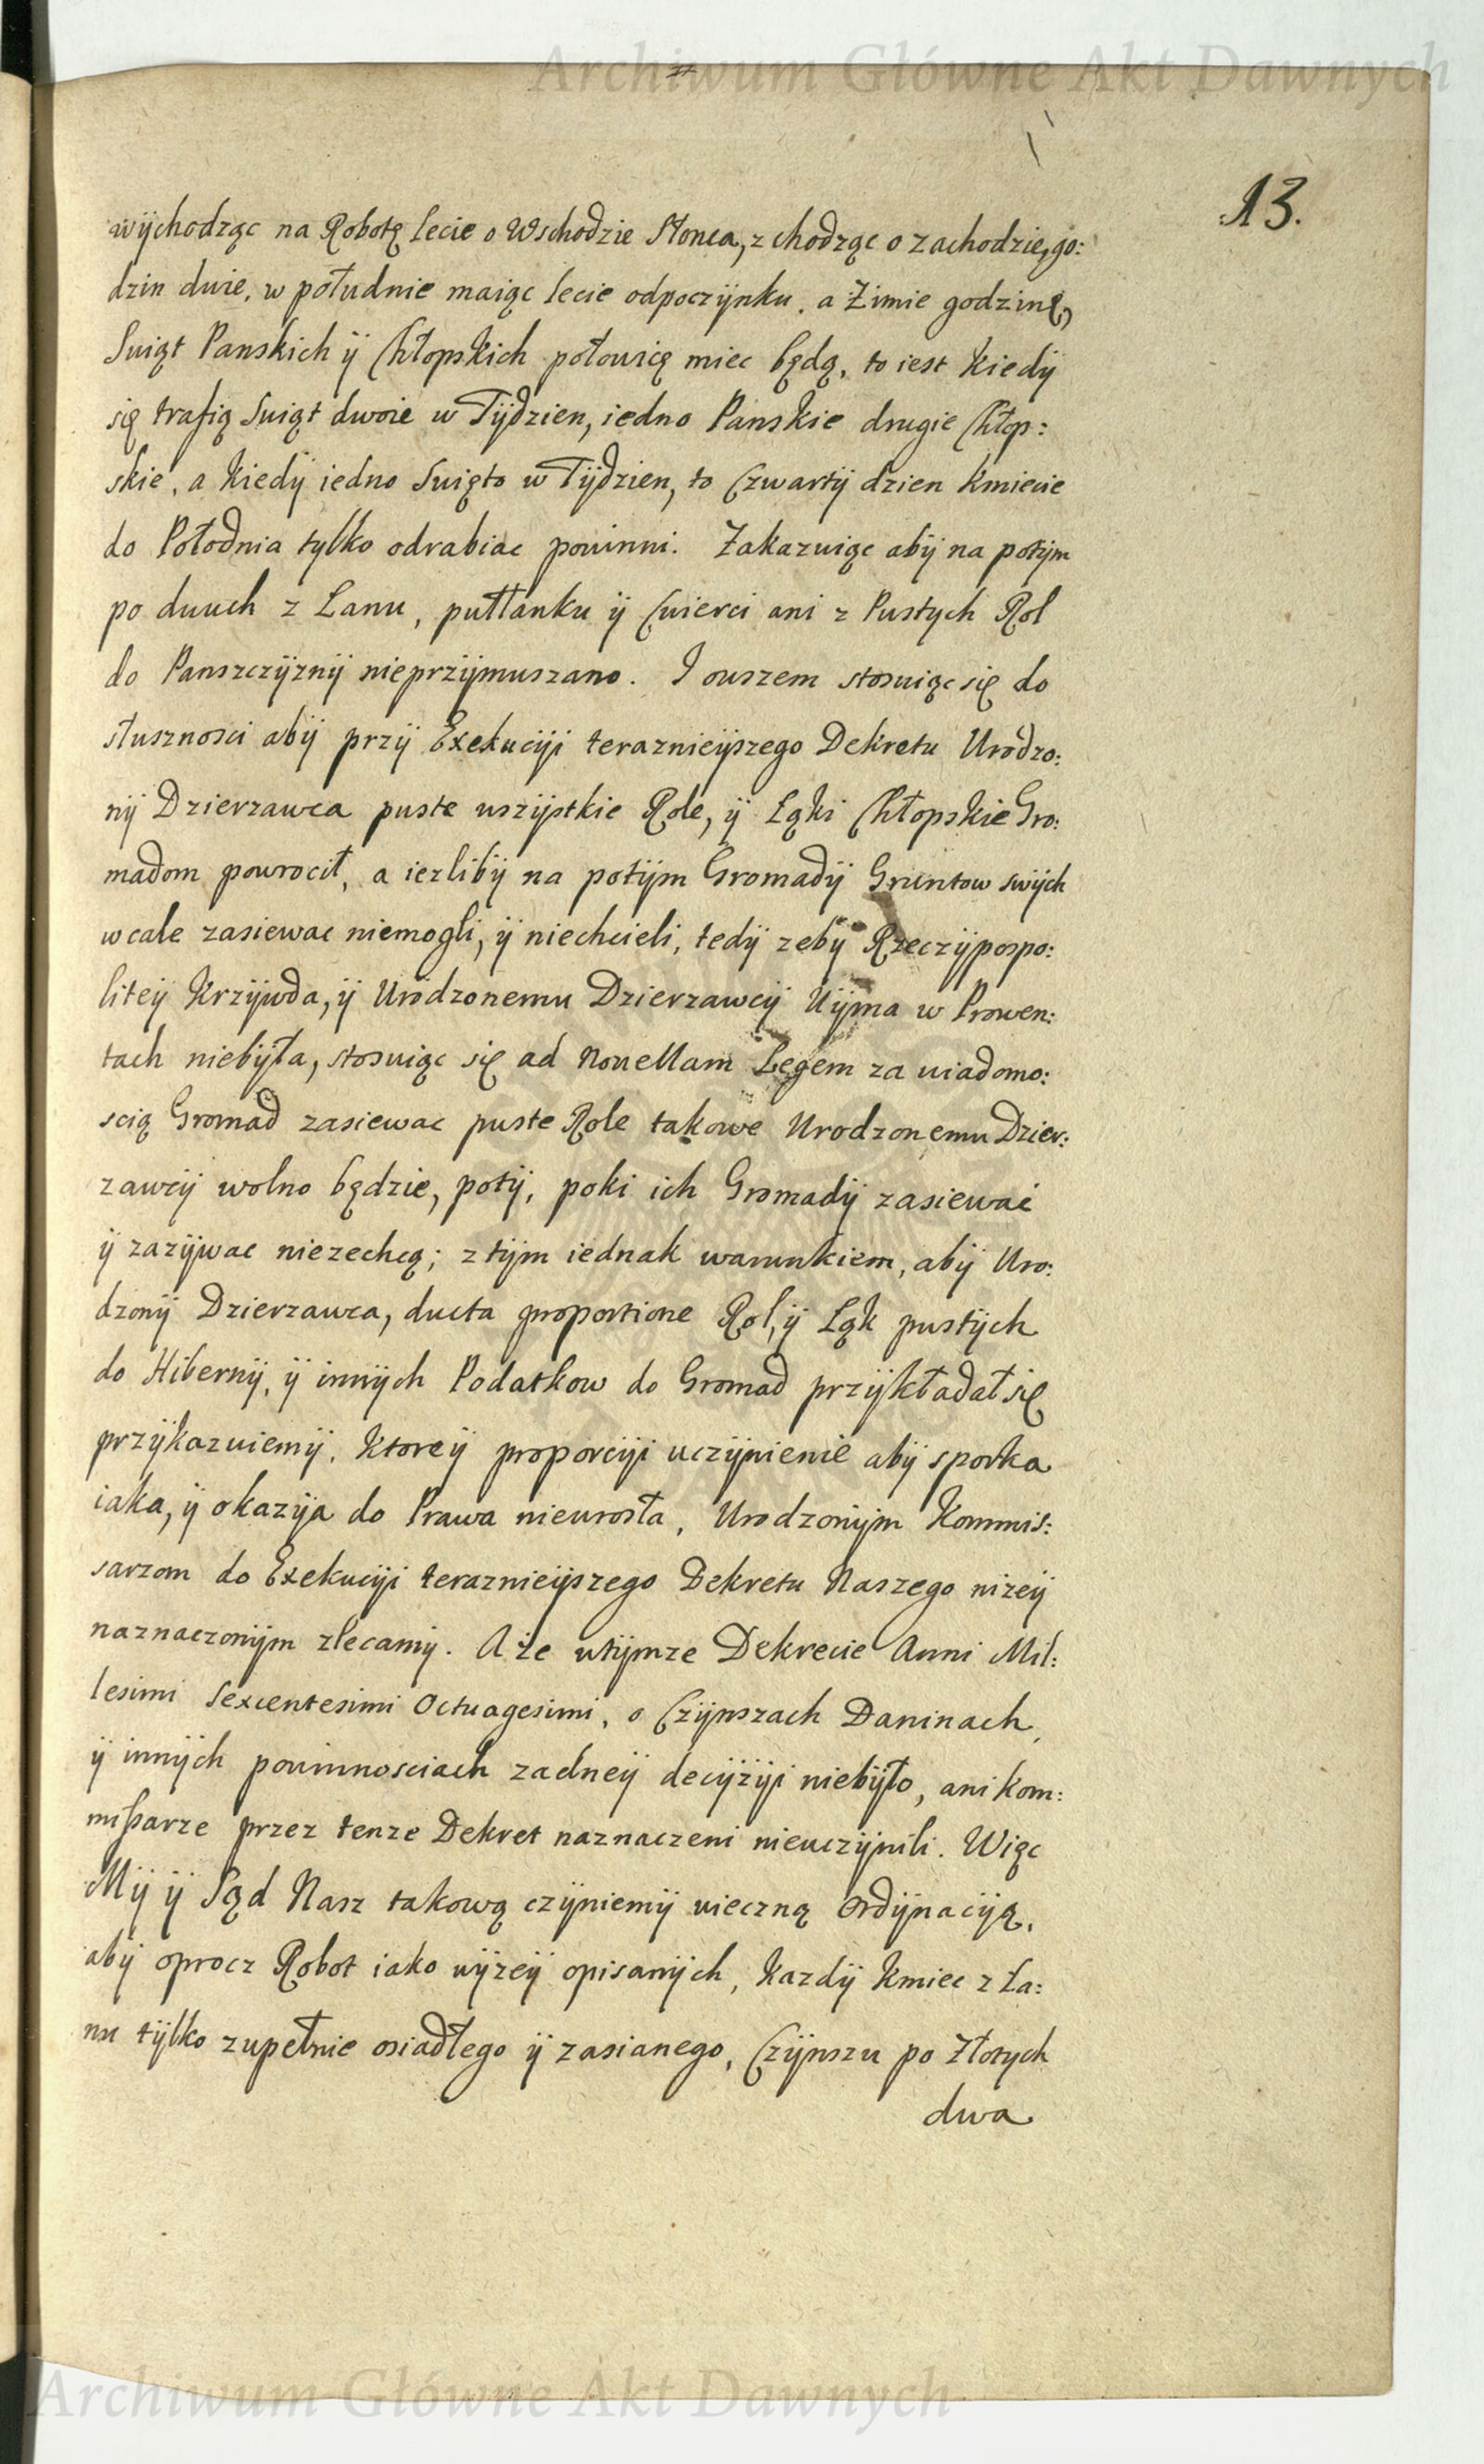 Archiwum Główne Akt Dawnych
13.
wÿchodząc na Robotę lecie o Wschodzie Słonca, z chodząc o zachodzie, go:
dzin dwie, w południe maiąc lecie odpoczÿnku. a Zimie godzinę,
Swiąt Panskich ÿ Chłopskich połowicę miec będą, to iest kiedÿ
się trafią Swiąt dwoie w Tÿdzien, iedno Panskie drugie Chłop:
skie, a kiedÿ iedno Swięto w Tÿdzien, to Czwartÿ dzien kmiecie
do Połodnia tylko odrabiac powinni. Zakazuiąc abÿ na potÿm
po dwuch z Łanu, pułłanku ÿ Cwierci ani z Pustych Rol
do Panszczÿznÿ nieprzÿmuszano. I owszem stosuiąc się do
słusznosci abÿ przÿ Exekucÿi teraznieÿszego Dekretu Urodzo:
nÿ Dzierzawca puste wszÿstkie Role, ÿ Łąki Chłopskie Gro:
madom powrocił, a iezlibÿ na potÿm Gromadÿ Gruntow swÿch
wcale zasiewac niemogli, ÿ niechcieli, tedÿ zebÿ Rzeczÿpospo:
liteÿ Krzÿwda, ÿ Urodzonemu Dzierzawcÿ Uÿma w Prowen:
tach niebÿła, stosuiąc się ad Novellam Legem za wiadomo:
scią Gromad zasiewac puste Role takowe Urodzonemu Dzier:
zawcÿ wolno będzie, potÿ, poki ich Gromadÿ zasiewać
ÿ zazÿwac niezechcą; z tÿm iednak warunkiem, abÿ Uro:
dzonÿ Dzierzawca, ducta proportione Rol, ÿ Łąk pustÿch
do Hibernÿ, ÿ innÿch Podatkow do Gromad przÿkładał się
przÿkazuiemÿ. Ktoreÿ proporcÿi uczÿnienie abÿ sporka
iaka, ÿ okazÿa do Prawa nieurosła, Urodzonÿm Kommis:
sarzom do Exekucÿi teraznieÿszego Dekretu Naszego nizeÿ
naznaczonÿm zlecamÿ. A ze wtÿmze Dekrecie Anni Mil:
lesimi Sexcentesimi Octuagesimi, o Czÿnszach Daninach,
ÿ innÿch powinnosciach zadneÿ decÿzÿi niebÿło, ani kom:
mißarze przez tenze Dekret naznaczeni nieuczÿnili. Więc
Mÿ ÿ Sąd Nasz takową czÿniemÿ wieczną Ordÿnacÿą,
abÿ oprocz Robot iako wÿzeÿ opisanÿch, kazdÿ kmiec z Ła:
nu tÿlko zupełnie osiadłego ÿ zasianego, Czÿnszu po Złotych
dwa
Archiwum Główne Akt Dawnych